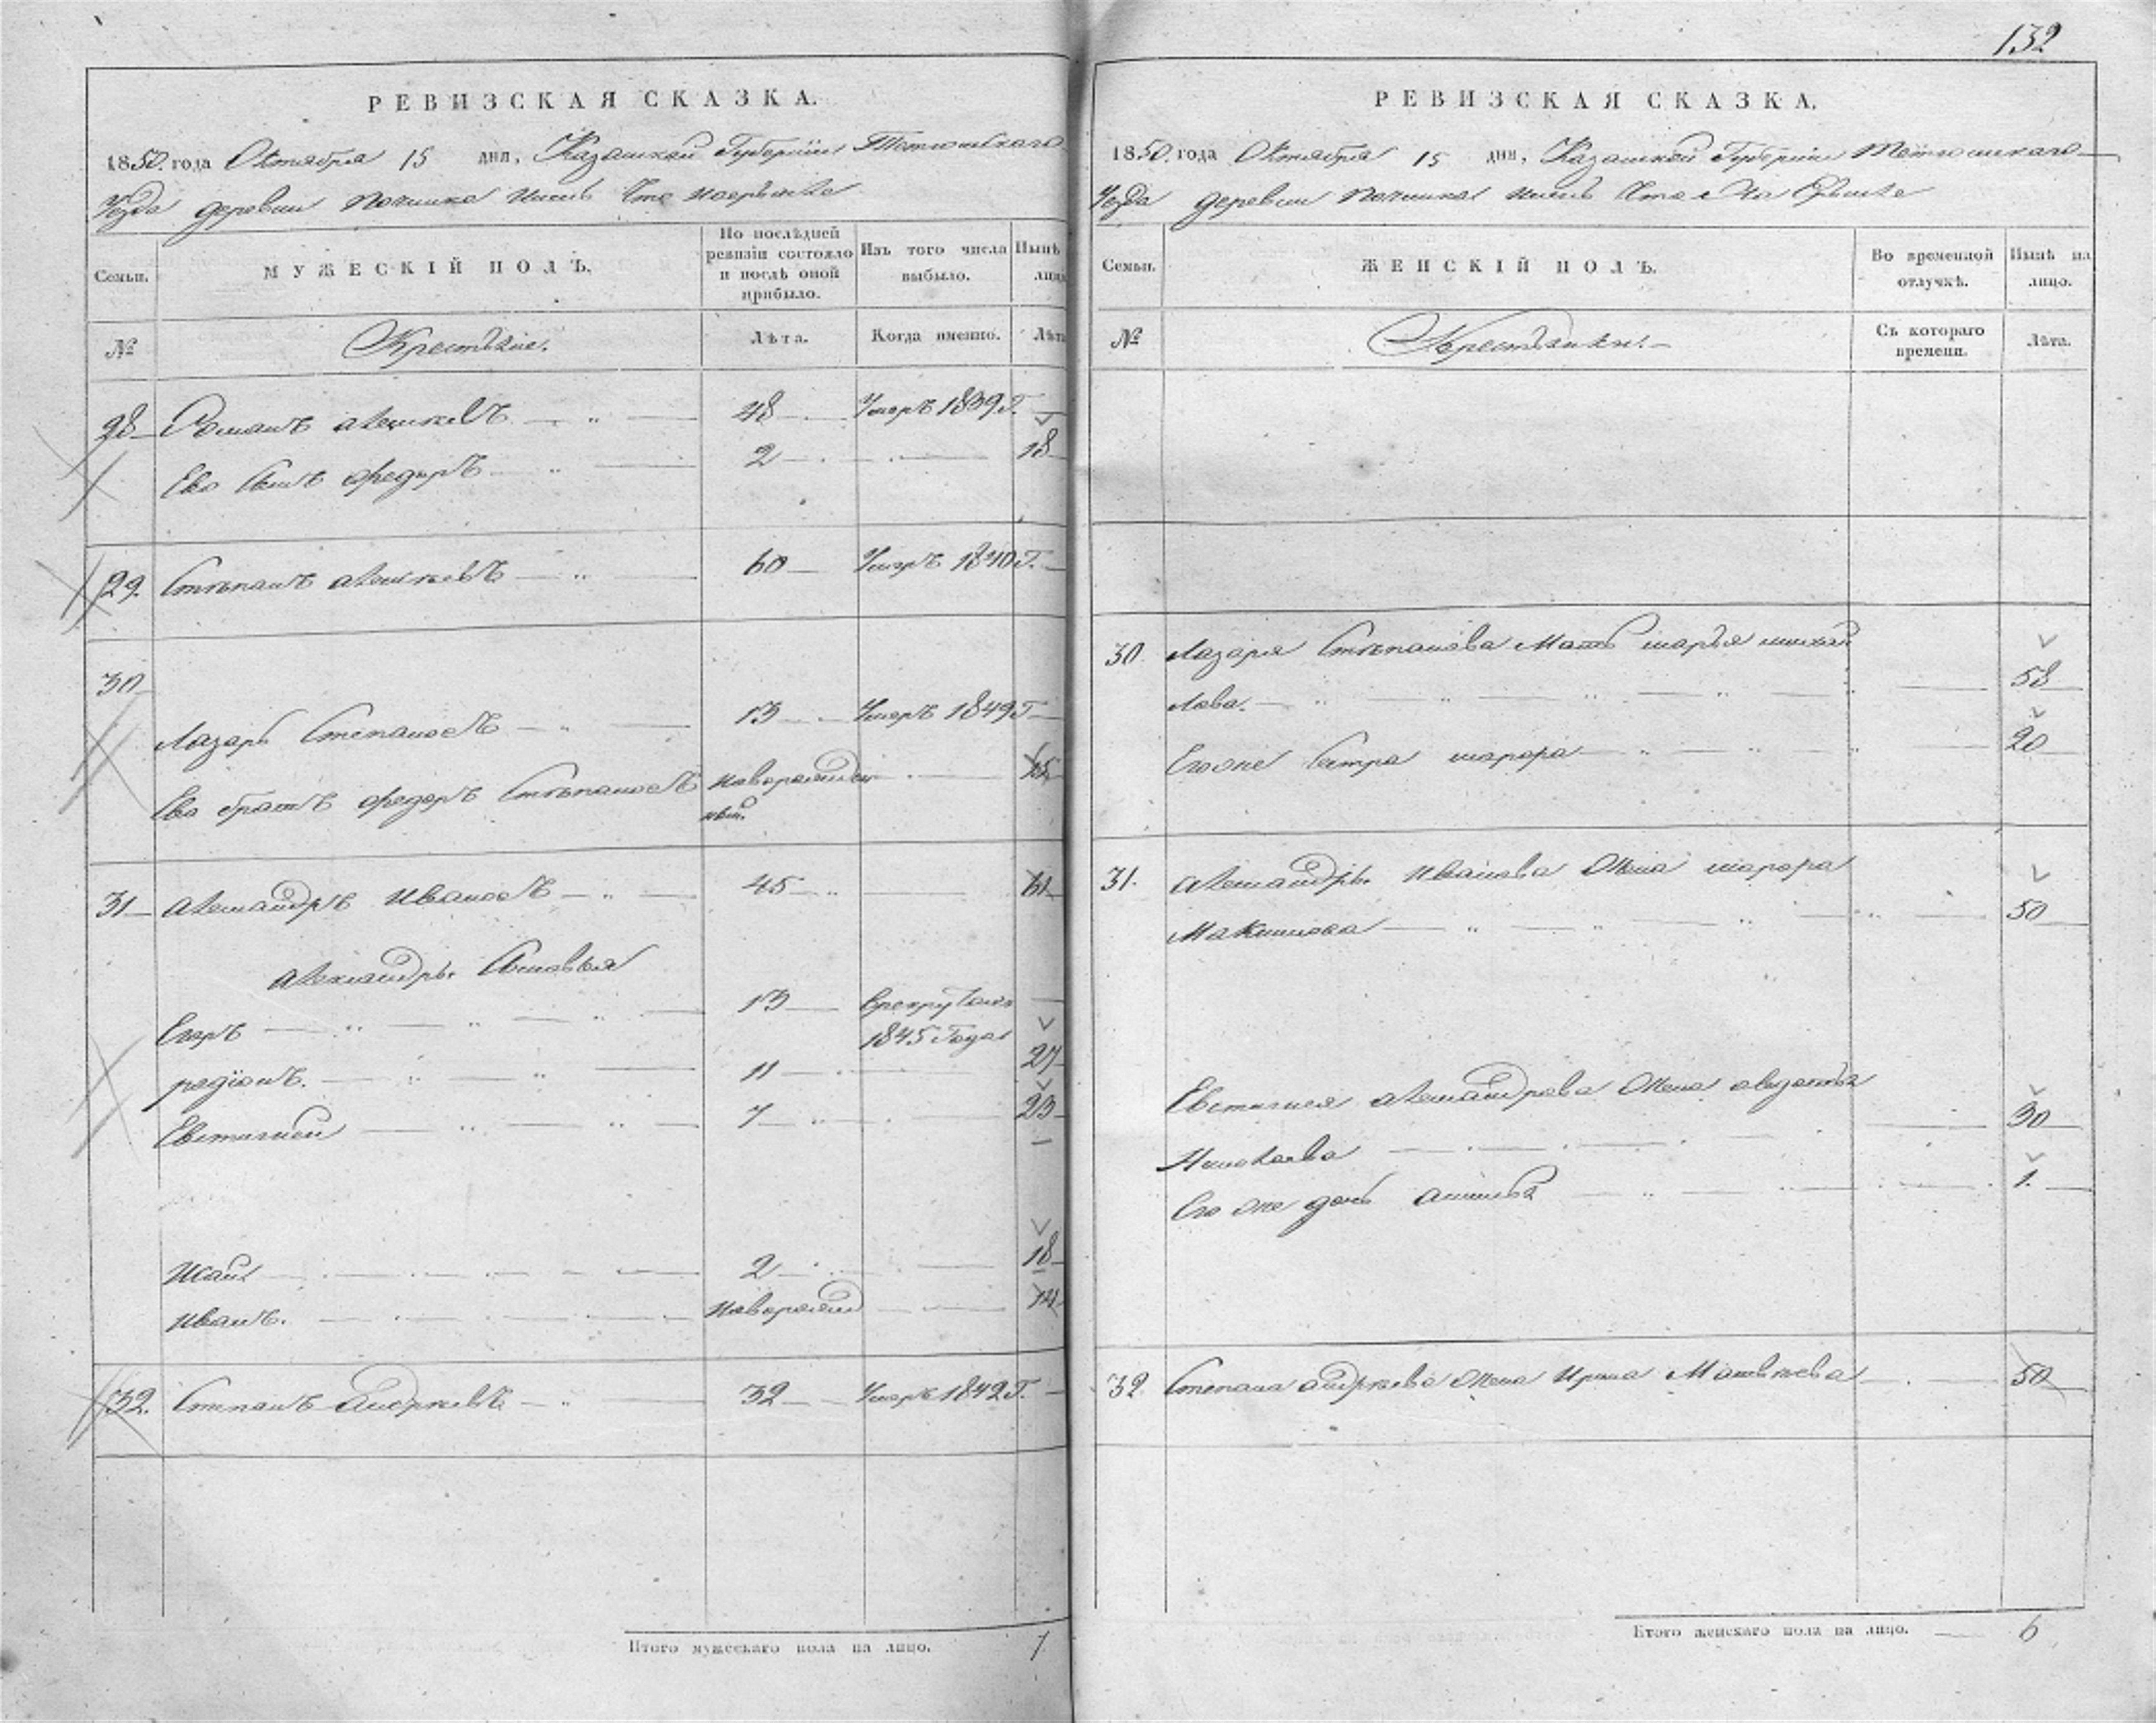 132
РЕВИЗСКАЯ СКАЗКА.
1850 года Октября 15 дня, Казанской Губернии Тетюшскаго
Уезда деревни Починка
Семьи.
МУЖЕСКІЙ ПОЛЪ.
По послѣдней ревизіи состояло и послѣ оной прибыло.
Изъ того числа выбыло.
Нынѣ лицо
№
Крестьяне.
Лѣта.
Когда именно.
Лѣта
28 Романъ 48 Умеръ 1839 Г.
Ево Сынъ Федоръ 2 18
29. Степанъ 60 Умеръ 1840 Г.
30
Лазарь Степановъ 13 Умеръ 1849 Г
Ево братъ Федоръ Степановъ новорожден 15
ный.
31 Александръ Ивановъ 45 61
Александры Сыновья
Егоръ 13 Врекруты
1845 Года
радіонъ. 11 27
Евстигней 7 23
Исай 2 18
Иванъ. новорожден 14
32. Степанъ Андреевъ 32 Умеръ 1842 Г.
Итого мужескаго пола на лицо. 7
РЕВИЗСКАЯ СКАЗКА.
1850 года Октября 15 дня, Казанской Губернии Тетюшскаго
Уезда деревни Починка
Семьи.
ЖЕНСКІЙ ПОЛЪ.
Во временной отлучкѣ.
Нынѣ на лицо.
№
Крестьянки.
Съ котораго времени.
Лѣта.
30 Лазаря Степанова Мать марья михай
лова. 58
Егоже Сестра марфра 20
31. Александры Иванова Жена марфра
Макимова 50
Евстигнея Александрова Жена авдотья
Николаева 30
Его же дочь 1.
32 Степана андреева жена Ирина Матвеева 50
Итого женскаго пола на лицо. 6